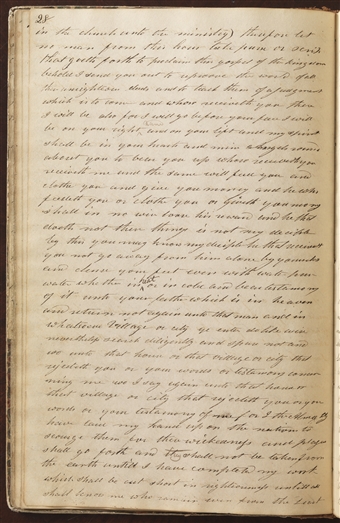 28
in the church unto the ministry) therefore let
no man from this hour take purse or scrip
that goeth forth to proclaim this gospel of the kingdom
behold I send you out to reprove the world of all
their unrighteous deeds and to teach them of a judgment
which is to come and whoso receiveth you there
I will be also for I will go before your face I will
be on your right hand and on your left and my spirit
shall be in your hearts and mine angels round
about you to bear you up whoso receiveth you
receiveth me and the same will feed you and
clothe you and give you money and he who
feedeth you or clothe you or giveth you money
shall in no wise loose his reward and he that
doeth not these things is not my deciple
by this you may know my deciple he that receiveth
you not go away from him alone by yourselves
and clense your feet even with water pure
water whether in heat or in cold and bear testimony
of it unto your father which is in heaven
and return not again unto that man and in
whatsoever Village or city ye enter do likewise
nevertheless search diligently and spare not and
wo unto that house or that village or city that
rejecteth you or your words or testimony concer
ning me wo I say again unto that house or
that village or city that rejecteth you or your
words or your testimony of me for I the Almighty
have laid my hand upon the nation to
scourge them for their wickedness and plagues
shall go forth and they shall not be taken from
the earth untill I have completed my work
which shall be cut short in righteousness untill all
shall know me who remain even from the least